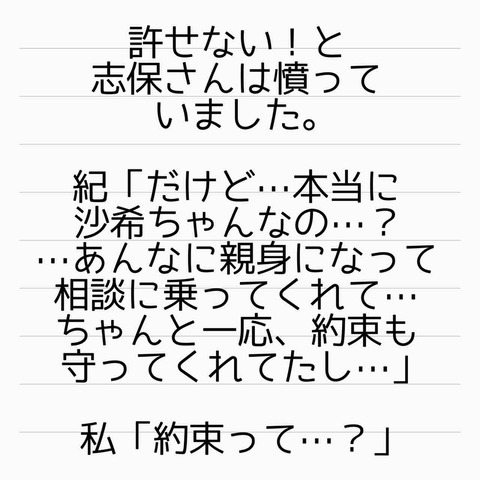 許せない！と
志保さんは憤って
いました。
紀「だけど…本当に
沙希ちゃんなの…？
…あんなに親身になって
相談に乗ってくれて…
ちゃんと一応、約束も
守ってくれてたし…」
私「約束って…？」